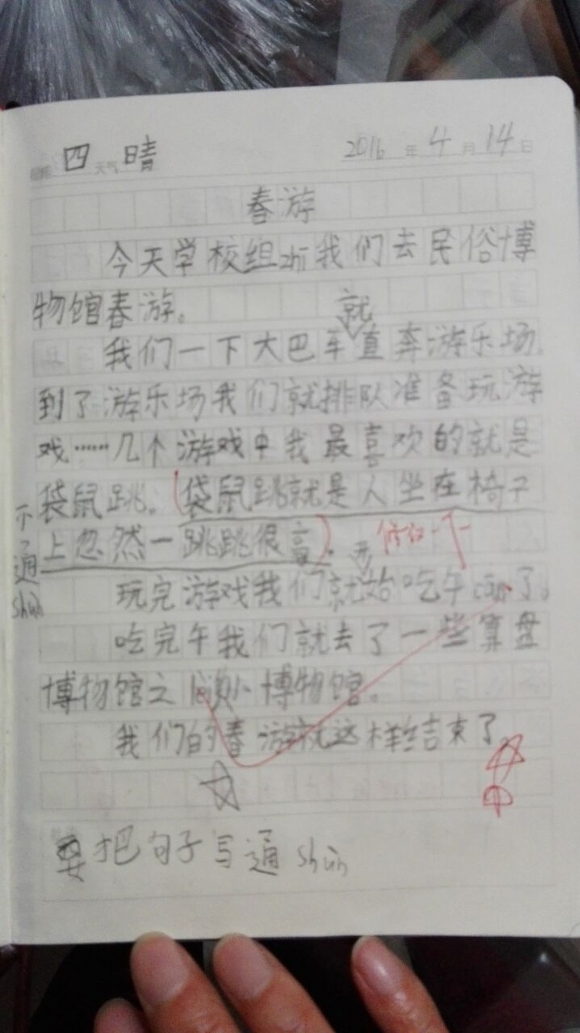 四 天气 晴 2016 年 4 月 14 日
春游
今天学校组zhi我们去民俗博
物馆春游。
就
我们一下大巴车直奔游乐场。
到了游乐场我们就排队准备玩游
戏……几个游戏中我最喜欢的就是
袋鼠跳。(袋鼠跳就是人坐在椅子
上忽然一跳跳很高)。
不通shùn
开
玩完游戏我们就始吃午can了。
吃完午我们就去了一些算盘
博物馆之 小博物馆。
我们的春游就这样结束了。
要把句子写通shùn